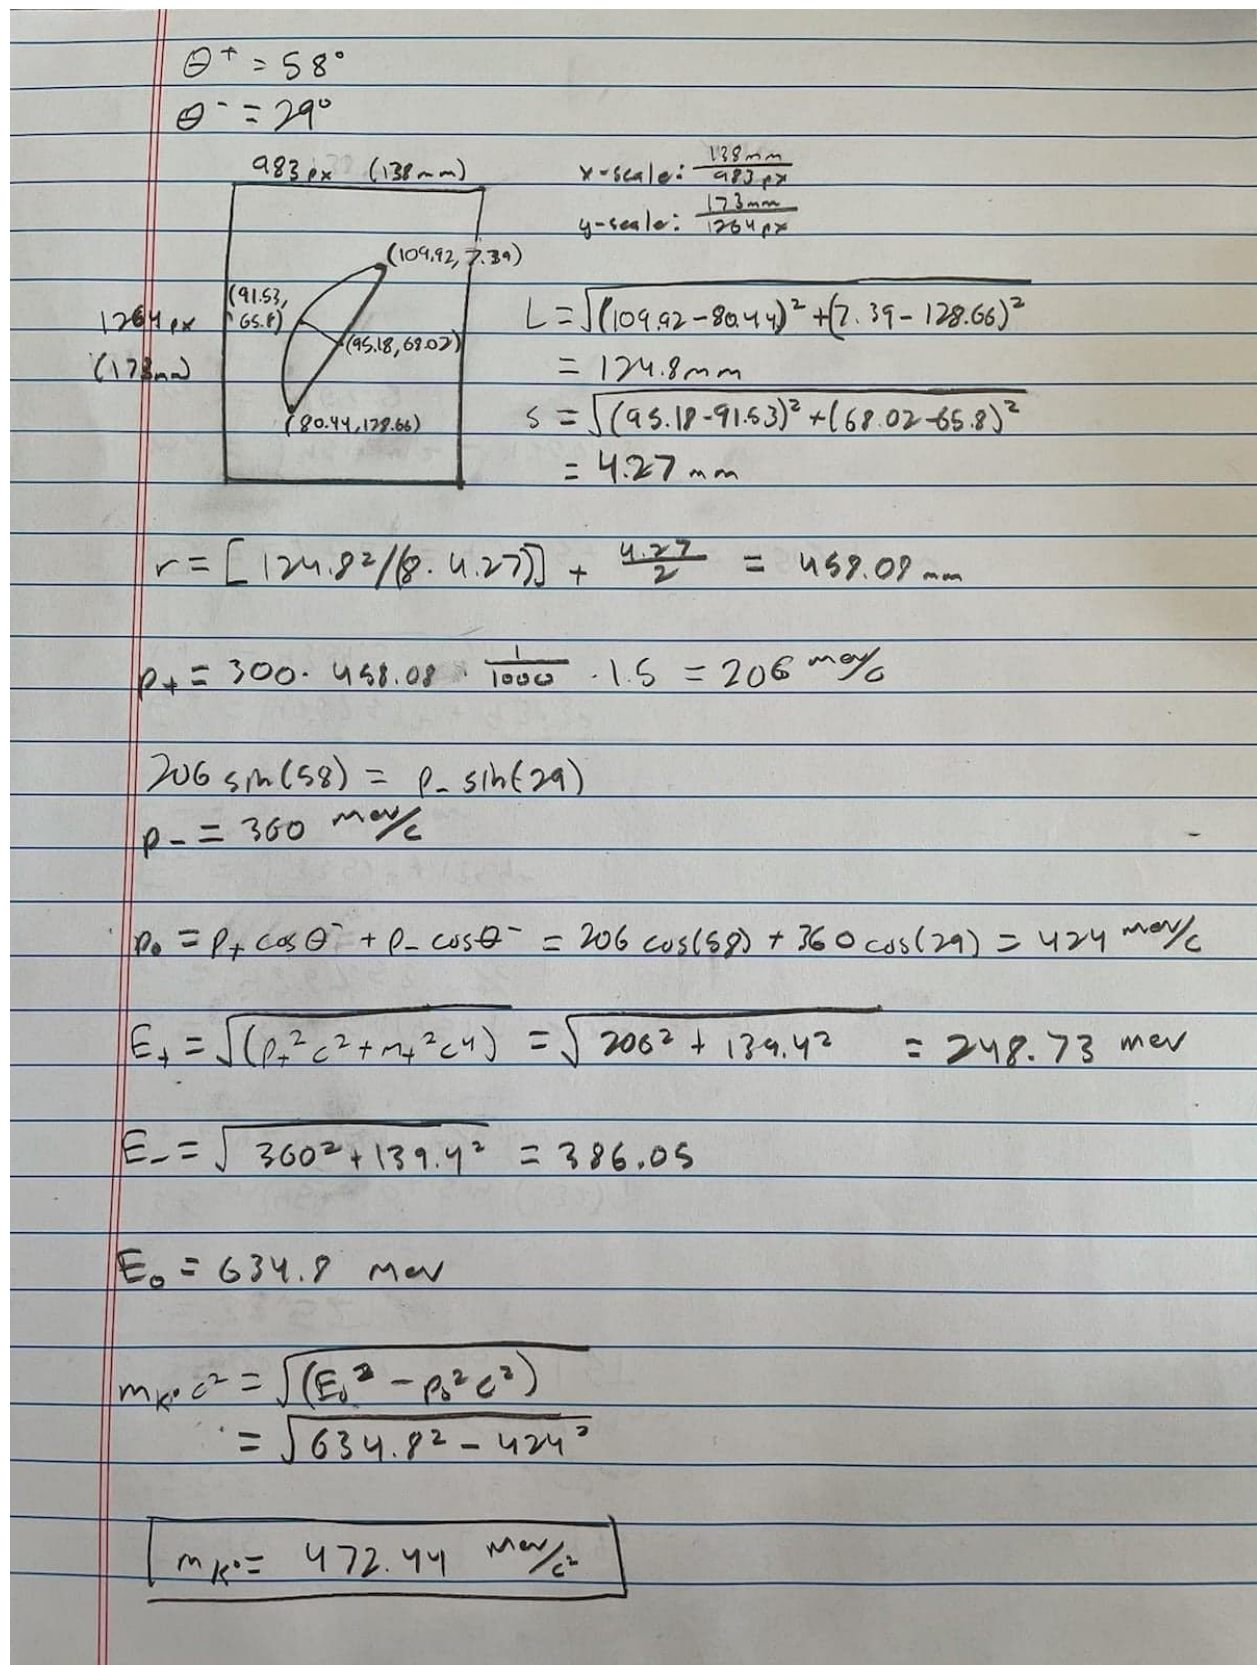 θ⁺ = 58°
θ⁻ = 29°
983 px (138 mm)
x-scale: 138mm / 983 px
y-scale: 173mm / 1264 px
(109.92, 7.39)
(91.53, 65.8)
1264 px
(173mm)
(95.18, 68.02)
(80.44, 128.66)
L = √(109.92 - 80.44)² + (7.39 - 128.66)²
= 124.8mm
s = √(95.18 - 91.53)² + (68.02 - 65.8)²
= 4.27 mm
r = [124.8² / (8 · 4.27)] + 4.27/2 = 458.08 mm
p₊ = 300 · 458.08 · 1/1000 · 1.5 = 206 MeV/c
206 sin(58) = p₋ sin(29)
p₋ = 360 MeV/c
p₀ = p₊ cosθ⁻ + p₋ cosθ⁻ = 206 cos(58) + 360 cos(29) = 424 MeV/c
E₊ = √(p₊²c² + m₊²c⁴) = √206² + 139.4² = 248.73 MeV
E₋ = √360² + 139.4² = 386.05
E₀ = 634.8 MeV
m_K⁰ c² = √(E₀² - p₀²c²)
= √634.8² - 424²
m_K⁰ = 472.44 MeV/c²